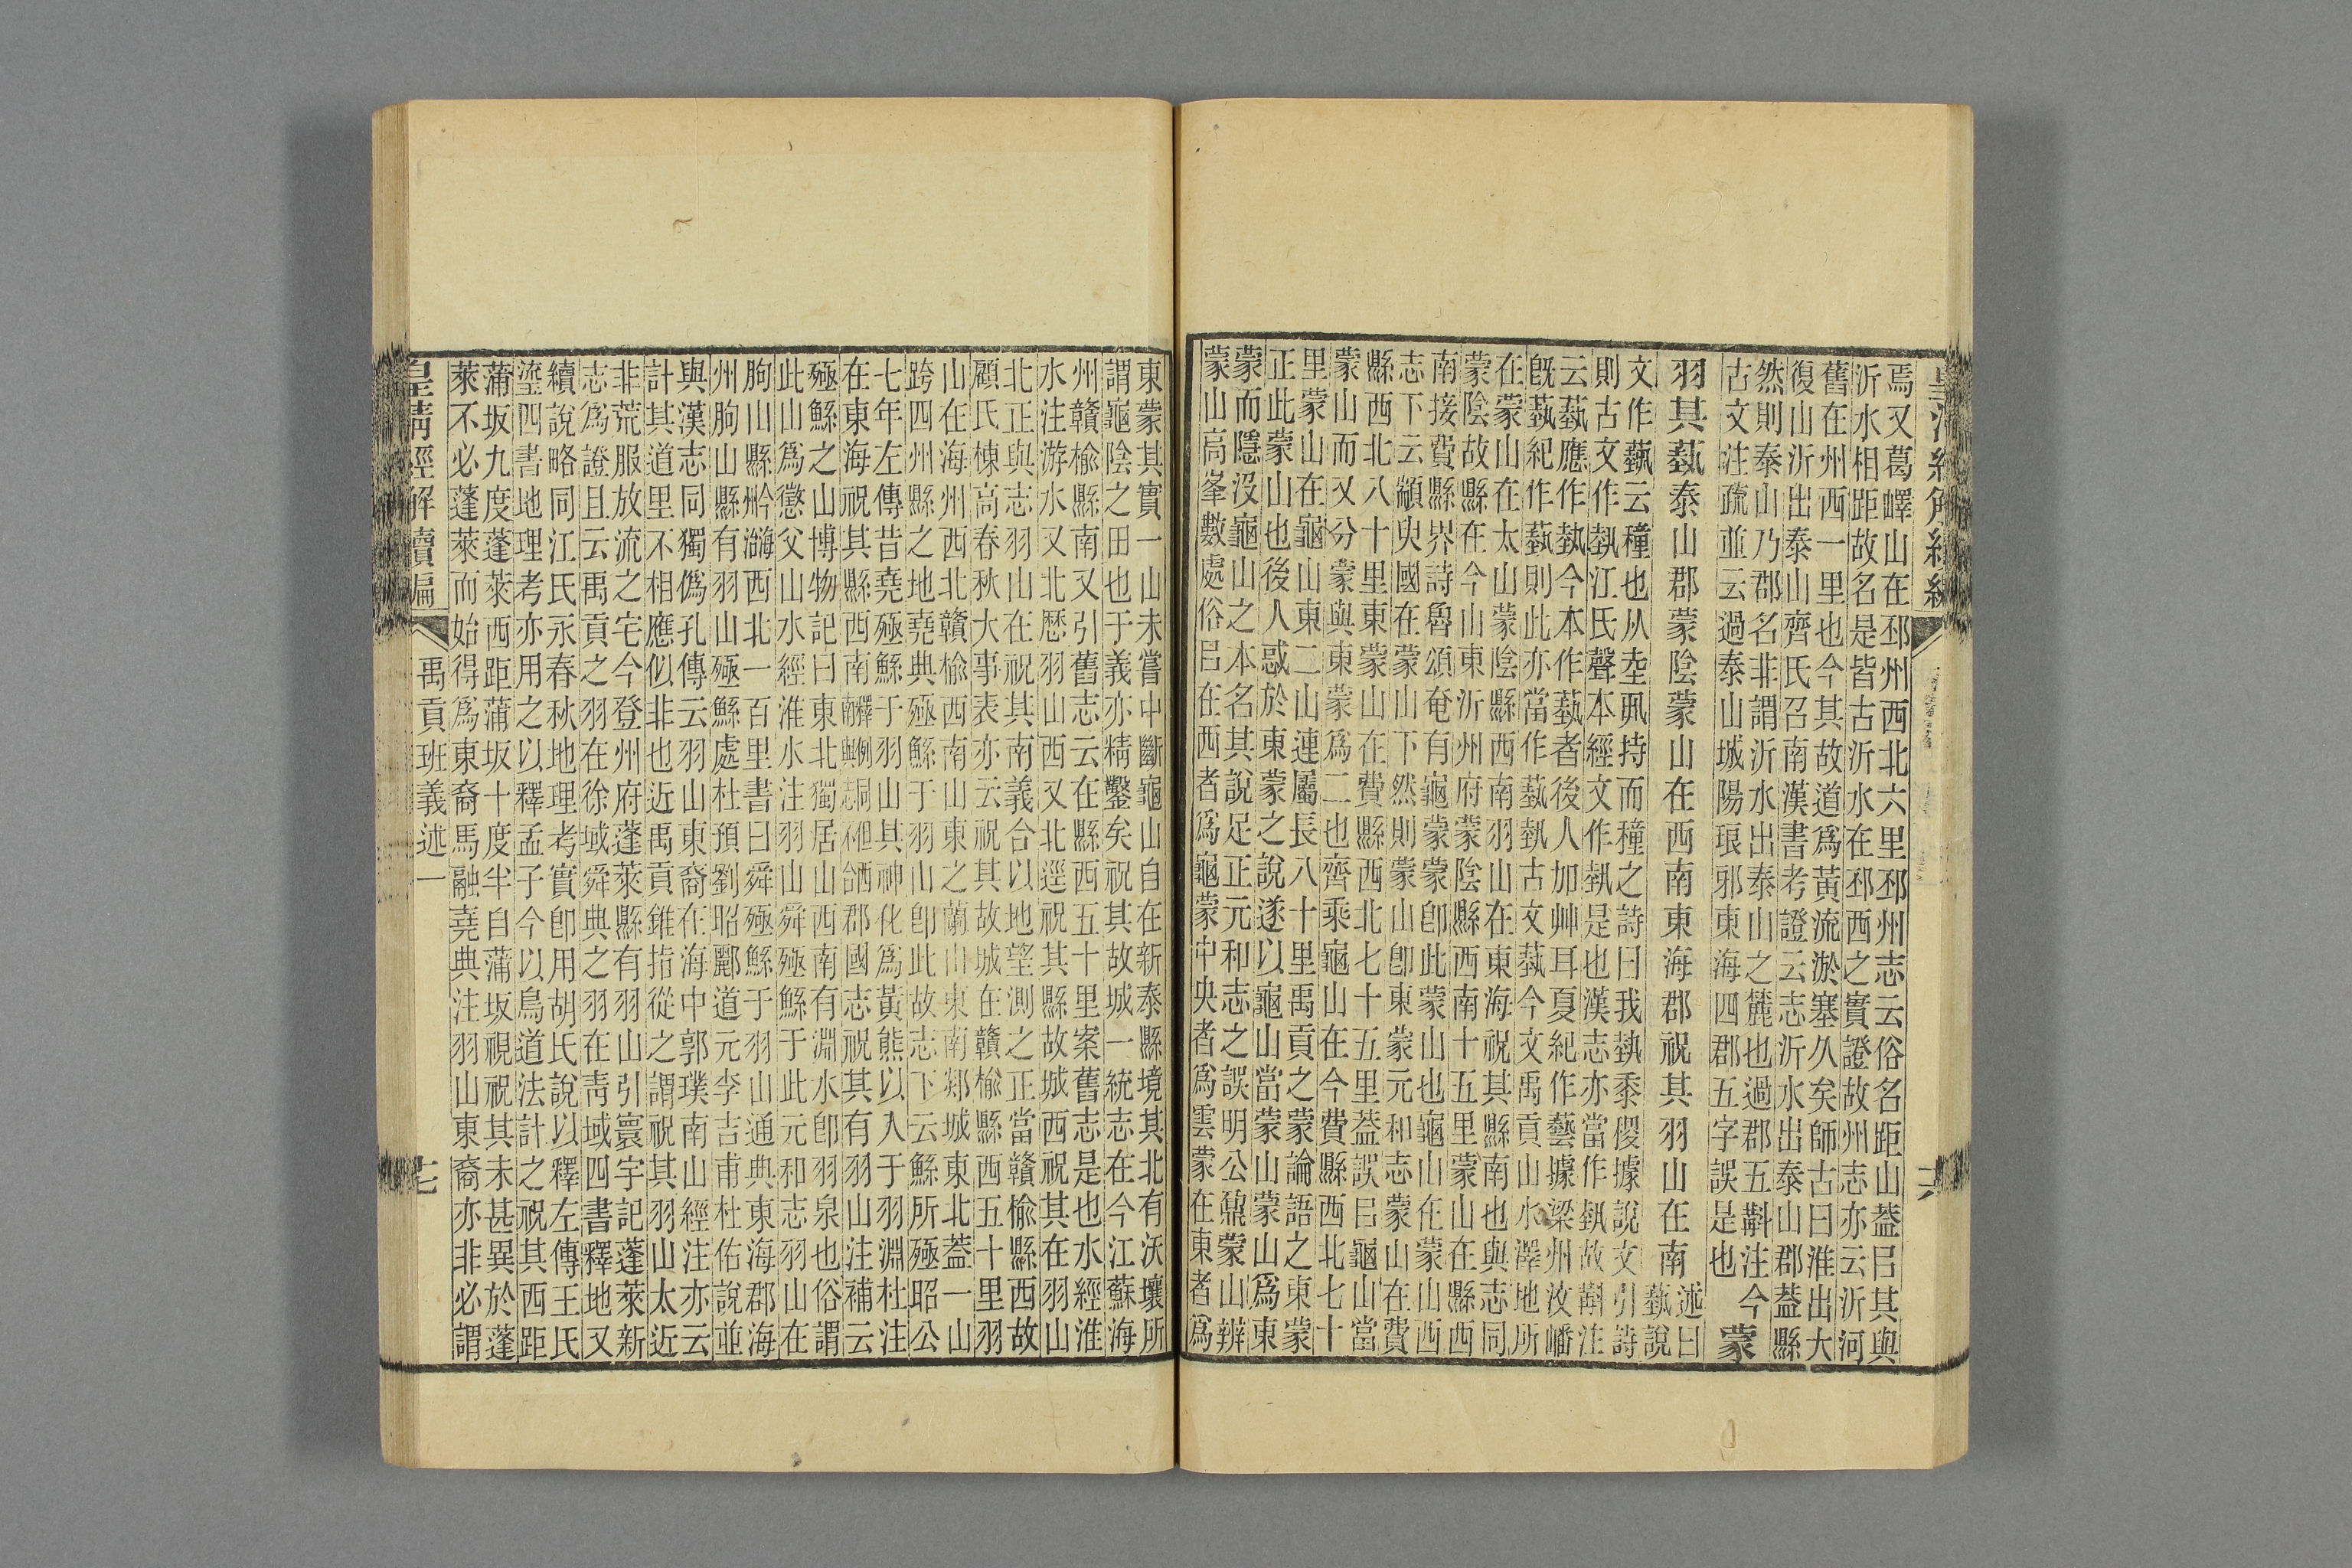 焉又葛嶧山在邳州西北六里邳州志云俗名距山蓋㠯其與
沂水相距故名是皆古沂水在邳西之實證故州志亦云沂河
舊在州西一里也今其故道爲黃流淤塞久矣師古曰淮出大
復山沂出泰山齊氏召南漢書考證云志沂水出泰山郡蓋縣
然則泰山乃郡名非謂沂水出泰山之麓也過郡五斠注今
古文注疏並云過泰山城陽琅邪東海四郡五字誤是也
蒙
羽其蓺泰山郡蒙陰蒙山在西南東海郡祝其羽山在南
述曰
蓺說
文作蓺云穜也从坴丮持而穜之詩曰我埶黍稷據說文引詩
則古文作埶江氏聲本經文作埶是也漢志亦當作埶故斠注
云蓺應作埶今本作蓺者後人加艸耳夏紀作藝據梁州汶嶓
旣蓺紀作蓺則此亦當作蓺埶古文蓺今文禹貢山水澤地所
在蒙山在太山蒙陰縣西南羽山在東海祝其縣南也與志同
蒙陰故縣在今山東沂州府蒙陰縣西南十五里蒙山在縣西
南接費縣界詩魯頌奄有龜蒙蒙卽此蒙山也龜山在蒙山西
志下云顓臾國在蒙山下然則蒙山卽東蒙元和志蒙山在費
縣西北八十里東蒙山在費縣西北七十五里蓋誤㠯龜山當
蒙山而又分蒙與東蒙爲二也齊乘龜山在今費縣西北七十
里蒙山在龜山東二山連屬長八十里禹貢之蒙論語之東蒙
正此蒙山也後人惑於東蒙之說遂以龜山當蒙山蒙山爲東
蒙而隱沒龜山之本名其說足正元和志之誤明公鼐蒙山辨
蒙山高峯數處俗㠯在西者爲龜蒙中央者爲雲蒙在東者爲
東蒙其實一山未嘗中斷龜山自在新泰縣境其北有沃壤所
謂龜陰之田也于義亦精鑿矣祝其故城一統志在今江蘇海
州贛榆縣南又引舊志云在縣西五十里案舊志是也水經淮
水注游水又北歷羽山西又北逕祝其縣故城西祝其在羽山
北正與志羽山在祝其南義合以地望測之正當贛榆縣西故
顧氏棟高春秋大事表亦云祝其故城在贛榆縣西五十里羽
山在海州西北贛榆西南山東之蘭山東南郯城東北蓋一山
跨四州縣之地堯典殛鯀于羽山卽此故志下云鯀所殛昭公
七年左傳昔堯殛鯀于羽山其神化爲黃熊以入于羽淵杜注
在東海祝其縣西南郡國志祝其有羽山注補云
殛鯀之山博物記曰東北獨居山西南有淵水卽羽泉也俗謂
此山爲懲父山水經淮水注羽山舜殛鯀于此元和志羽山在
朐山縣今海州西北一百里書曰舜殛鯀于羽山通典東海郡海
州朐山縣有羽山殛鯀處杜預劉昭酈道元李吉甫杜佑說並
與漢志同獨僞孔傳云羽山東裔在海中郭璞南山經注亦云
計其道里不相應似非也近禹貢錐指從之謂祝其羽山太近
非荒服放流之宅今登州府蓬萊縣有羽山引寰宇記蓬萊新
志爲證且云禹貢之羽在徐域舜典之羽在靑域四書釋地又
續說略同江氏永春秋地理考實卽用胡氏說以釋左傳王氏
瀅四書地理考亦用之以釋孟子今以鳥道法計之祝其西距
蒲坂九度蓬萊西距蒲坂十度半自蒲坂視祝其未甚異於蓬
萊不必蓬萊而始得爲東裔馬融堯典注羽山東裔亦非必謂
皇清經解續編 禹貢班義述一